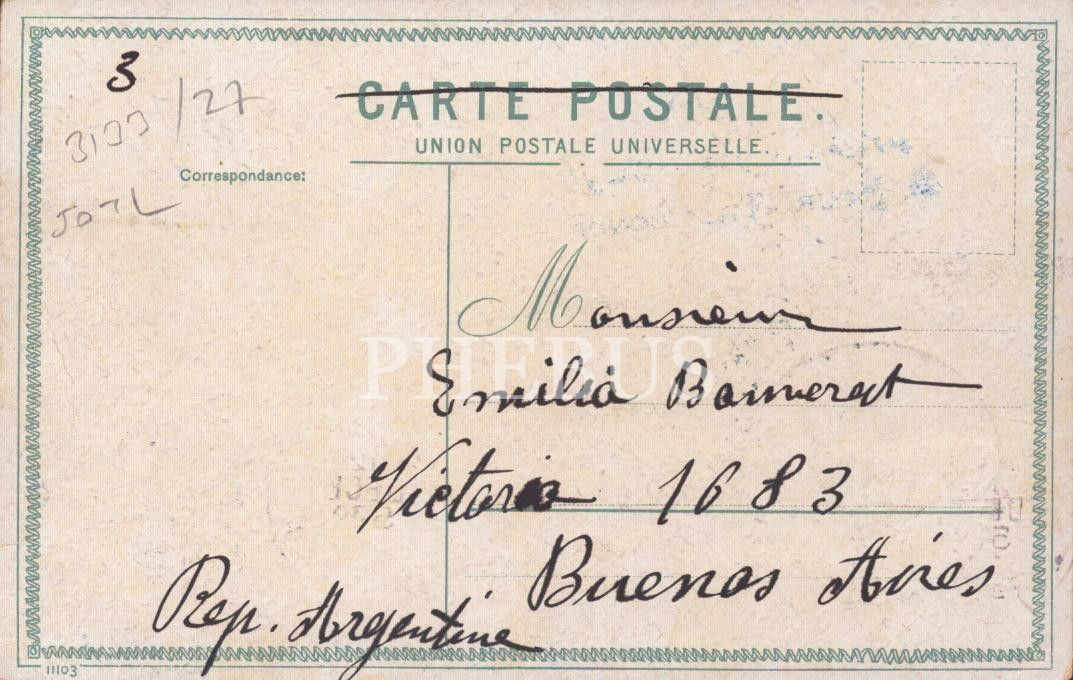 3
3133/27
CARTE POSTALE.
UNION POSTALE UNIVERSELLE.
Correspondance:
50TL
Monsieur
PHEBUS
Emilia
Victoria 1683
Buenos Aires
Rep. Argentine
11103